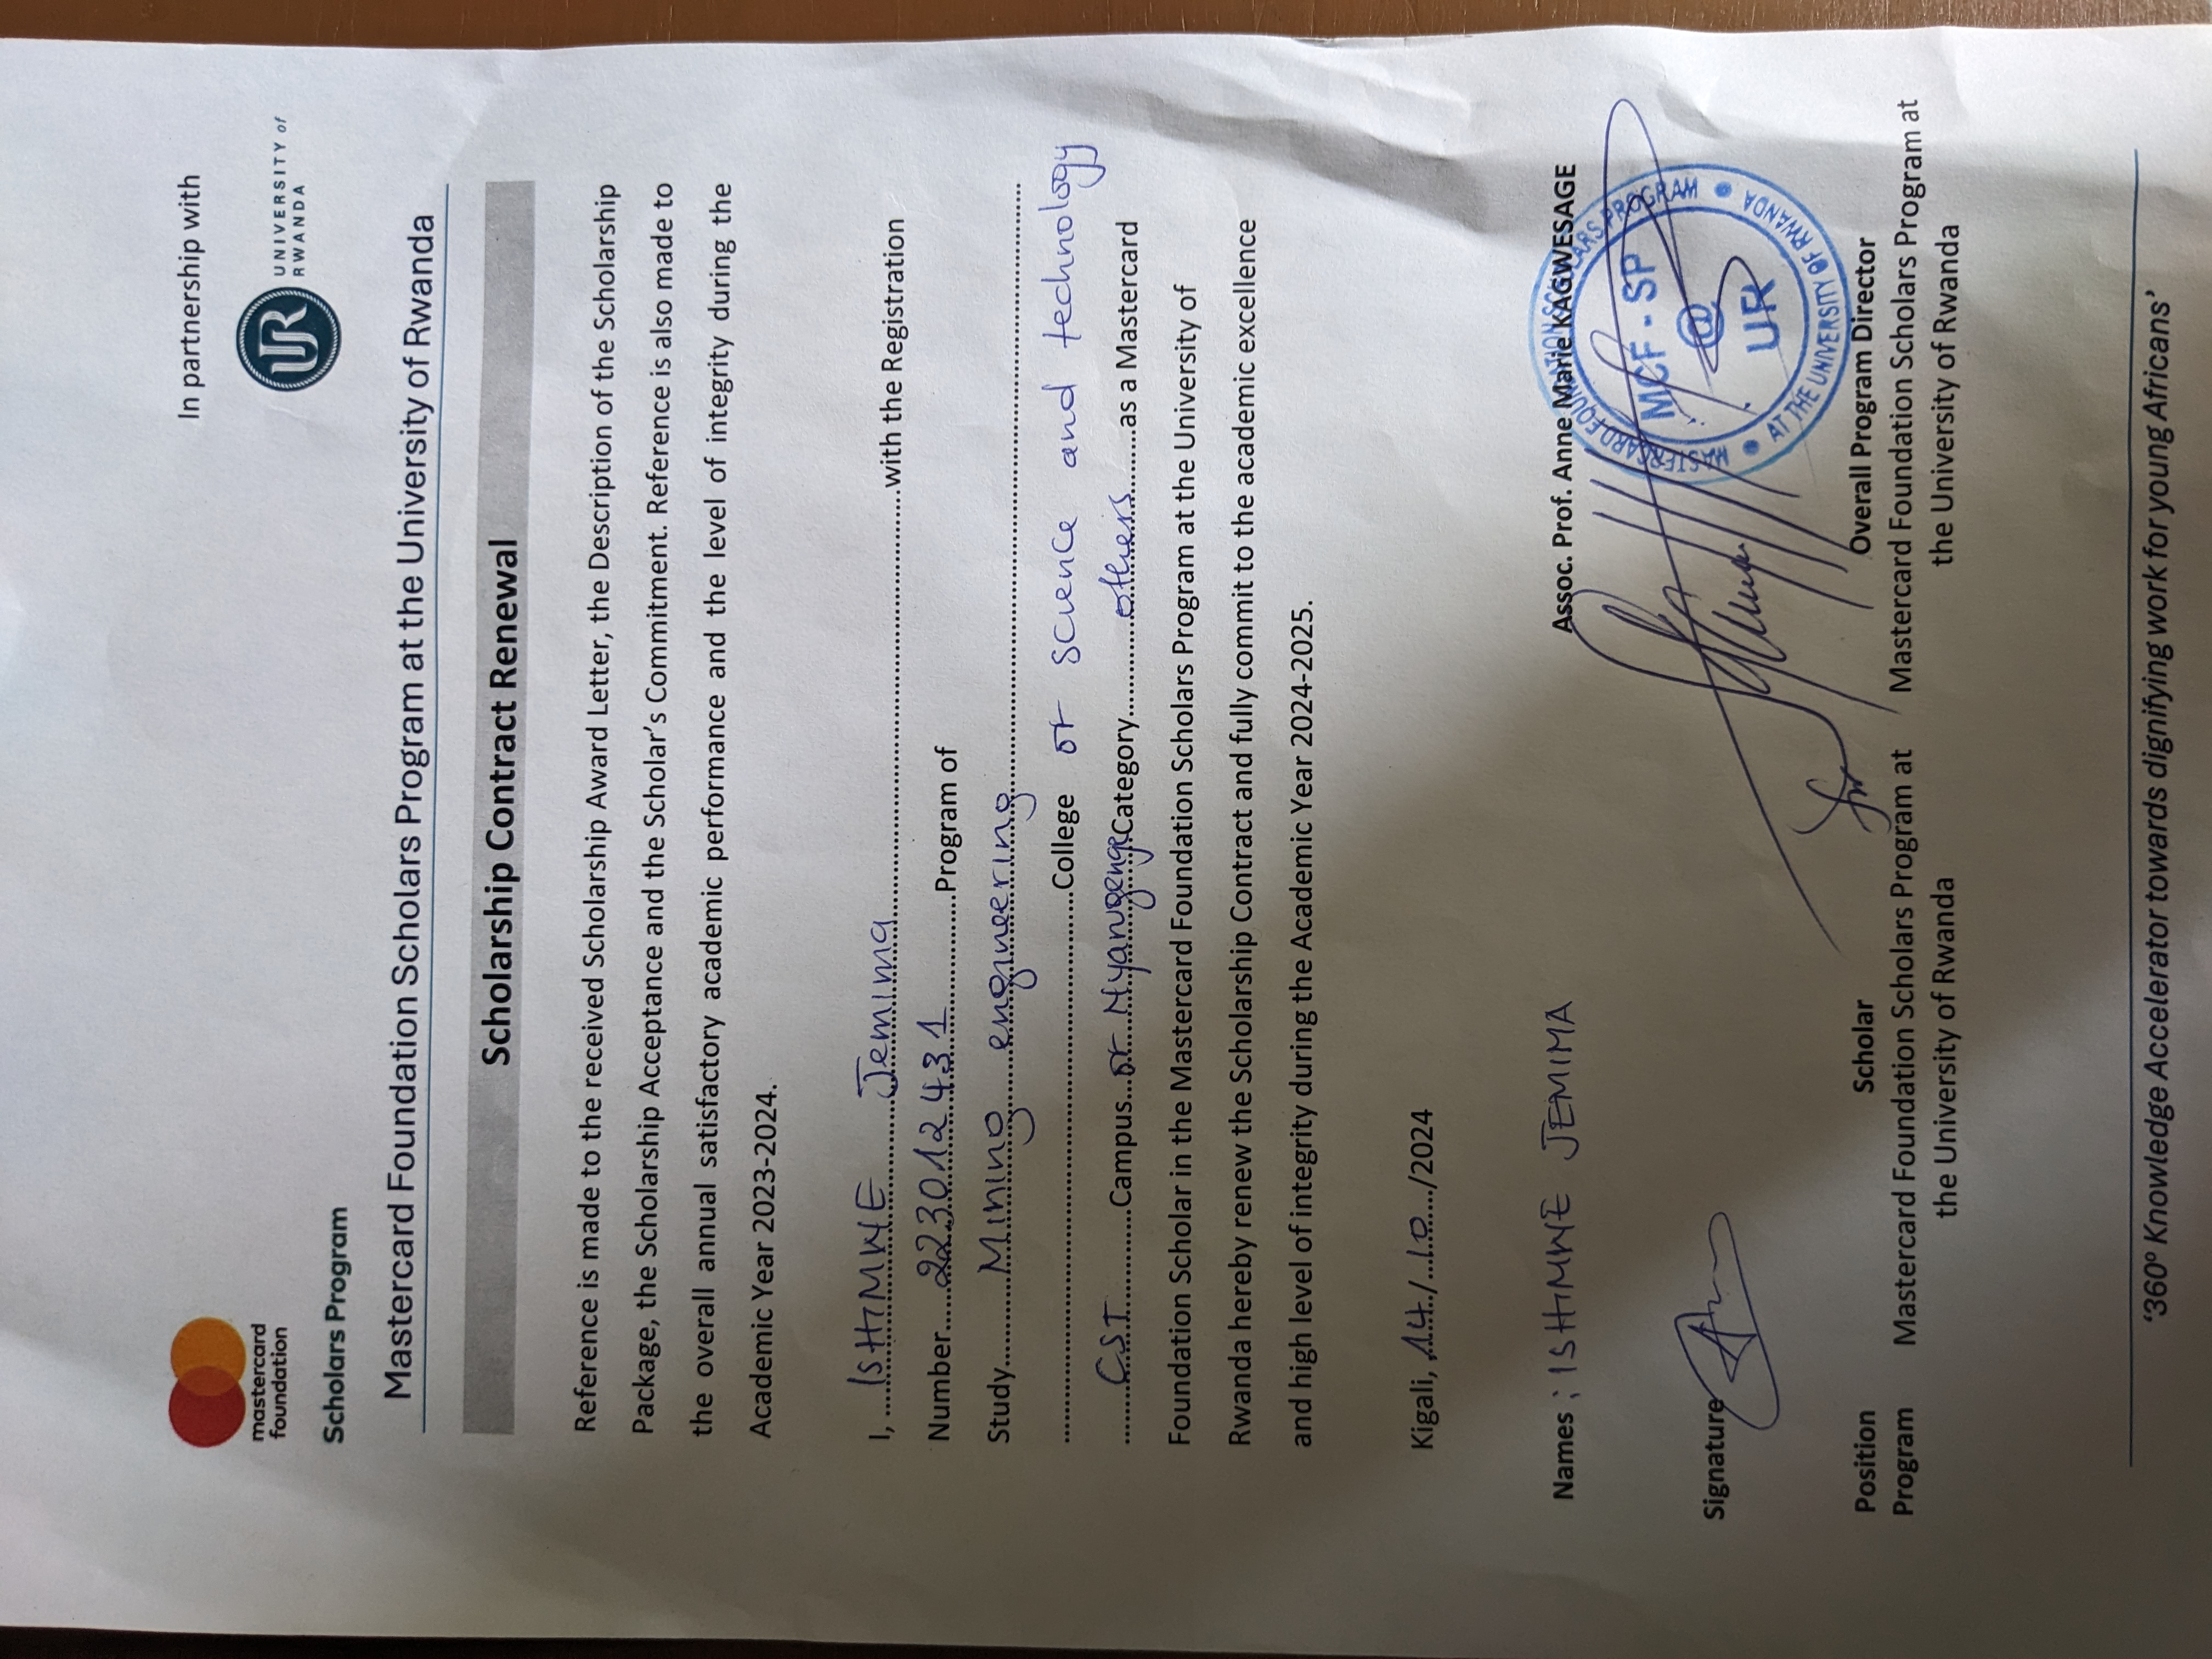 mastercard
foundation
Scholars Program
In partnership with
UR
UNIVERSITY of
RWANDA
Mastercard Foundation Scholars Program at the University of Rwanda
Scholarship Contract Renewal
Reference is made to the received Scholarship Award Letter, the Description of the Scholarship
Package, the Scholarship Acceptance and the Scholar's Commitment. Reference is also made to
the overall annual satisfactory academic performance and the level of integrity during the
Academic Year 2023-2024.
I, ISHIMWE Jemima with the Registration
Number 223012431 Program of
Study Mining engineering
College of science and technology
CST Campus of Nyarugenge Category others as a Mastercard
Foundation Scholar in the Mastercard Foundation Scholars Program at the University of
Rwanda hereby renew the Scholarship Contract and fully commit to the academic excellence
and high level of integrity during the Academic Year 2024-2025.
Kigali, 14/10/2024
Names : ISHIMWE JEMIMA
Assoc. Prof. Anne Marie KAGWESAGE
Signature
MASTERCARD FOUNDATION SCHOLARS PROGRAM
AT THE UNIVERSITY OF RWANDA
MCF - SP
@
UR
Position Scholar Overall Program Director
Program Mastercard Foundation Scholars Program at Mastercard Foundation Scholars Program at
the University of Rwanda the University of Rwanda
'360° Knowledge Accelerator towards dignifying work for young Africans'